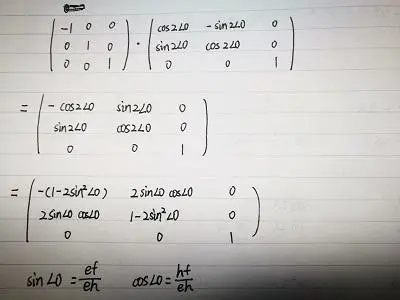 ( -1 0 0 ) · ( cos2∠0 -sin2∠0 0 )
( 0 1 0 ) ( sin2∠0 cos2∠0 0 )
( 0 0 1 ) ( 0 0 1 )
= ( -cos2∠0 sin2∠0 0 )
( sin2∠0 cos2∠0 0 )
( 0 0 1 )
= ( -(1-2sin²∠0) 2sin∠0 cos∠0 0 )
( 2sin∠0 cos∠0 1-2sin²∠0 0 )
( 0 0 1 )
sin∠0 = ef/eh cos∠0 = hf/eh